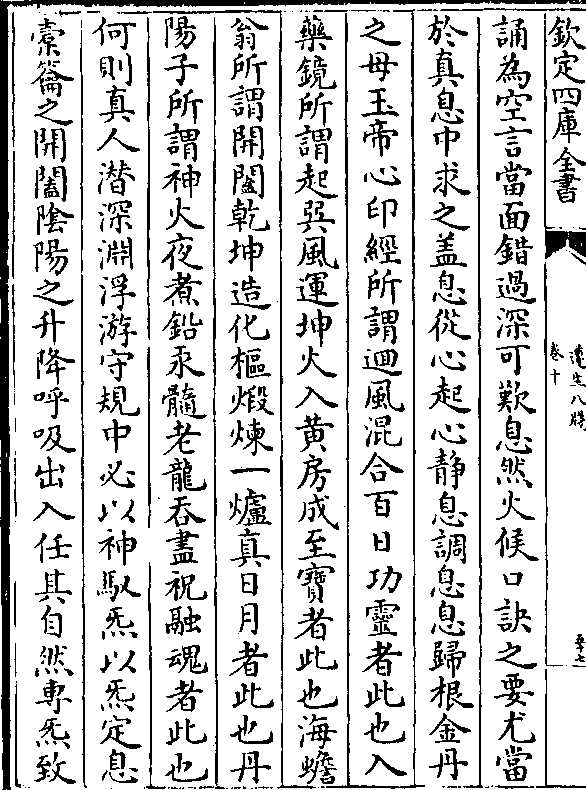 欽定四庫全書
遵生八牋
卷十
誦為空言當面錯過深可歎息然火候口訣之要尤當
於真息中求之盖息從心起心静息調息息歸根金丹
之母玉帝心印經所謂迴風混合百日功靈者此也入
藥鏡所謂起巽風運坤火入黄房成至寳者此也海蟾
翁所謂開闔乾坤造化樞煅煉一爐真日月者此也丹
陽子所謂神火夜煮鉛汞髓老龍吞盡祝融魂者此也
何則真人潜深淵浮游守規中必以神馭炁以炁定息
槖籥之開闔陰陽之升降呼吸出入任其自然專炁致